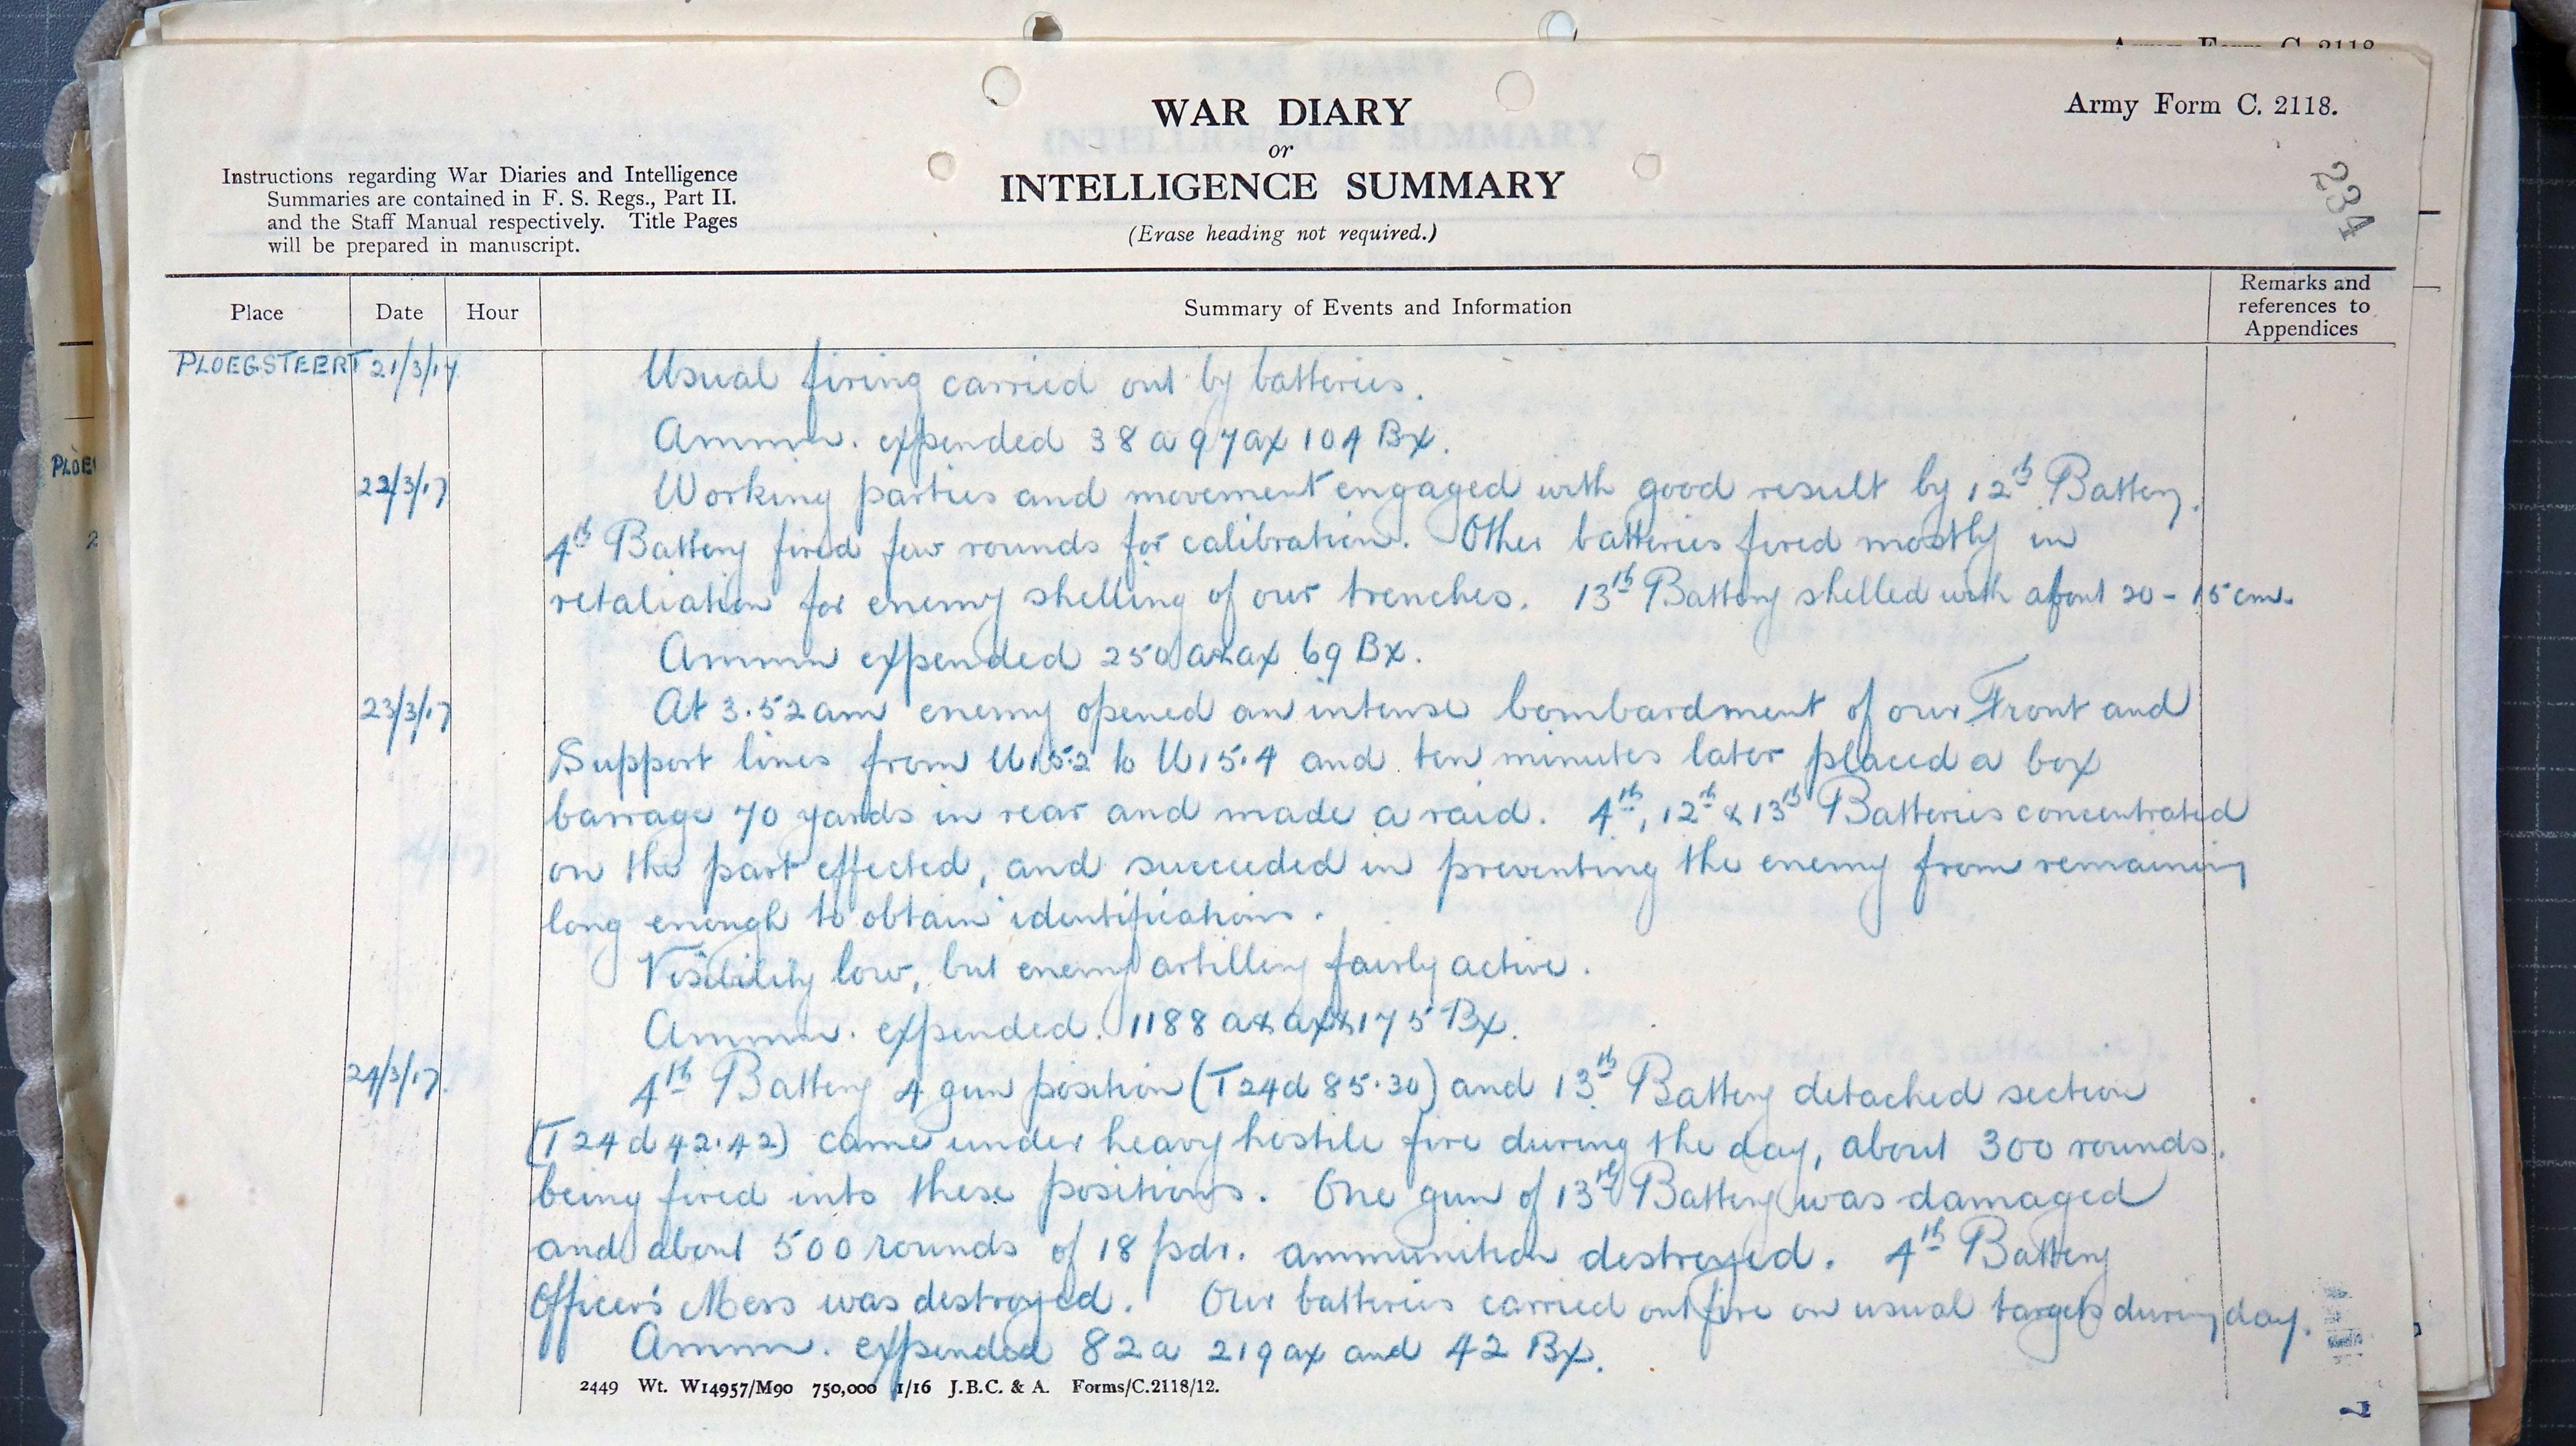 Army Form C. 2118
WAR DIARY
or
INTELLIGENCE SUMMARY
(Erase heading not required.)
Army Form C. 2118.
234
Instructions regarding War Diaries and Intelligence
Summaries are contained in F. S. Regs., Part II.
and the Staff Manual respectively. Title Pages
will be prepared in manuscript.
Place Date Hour Summary of Events and Information Remarks and
references to
Appendices
PLOEGSTEERT 21/3/17 Usual firing carried out by batteries.
Ammn. expended 38 a 97 ax 104 Bx.
22/3/17 Working parties and movement engaged with good result by 12th Battery.
4th Battery fired few rounds for calibration. Other batteries fired mostly in
retaliation for enemy shelling of our trenches. 13th Battery shelled with about 20 - 15 cm.
Ammn expended 250 a & ax 69 Bx.
23/3/17 At 3.52 am enemy opened an intense bombardment of our Front and
Support lines from U15.2 to U15.4 and ten minutes later placed a box
barrage 70 yards in rear and made a raid. 4th, 12th & 13th Batteries concentrated
on the part effected, and succeeded in preventing the enemy from remaining
long enough to obtain identifications.
Visibility low, but enemy artillery fairly active.
Ammn. expended. 1188 a & ax & 175 Bx.
24/3/17. 4th Battery 4 gun position (T24d 85.30) and 13th Battery detached section
(T24d 42.42) came under heavy hostile fire during the day, about 300 rounds.
being fired into these positions. One gun of 13th Battery was damaged
and about 500 rounds of 18 pdr. ammunition destroyed. 4th Battery
Officer's Mess was destroyed. Our batteries carried out fire on usual targets during day.
Ammn. expended 82 a 219 ax and 42 Bx.
2449 Wt. W14957/M90 750,000 1/16 J.B.C. & A. Forms/C.2118/12.